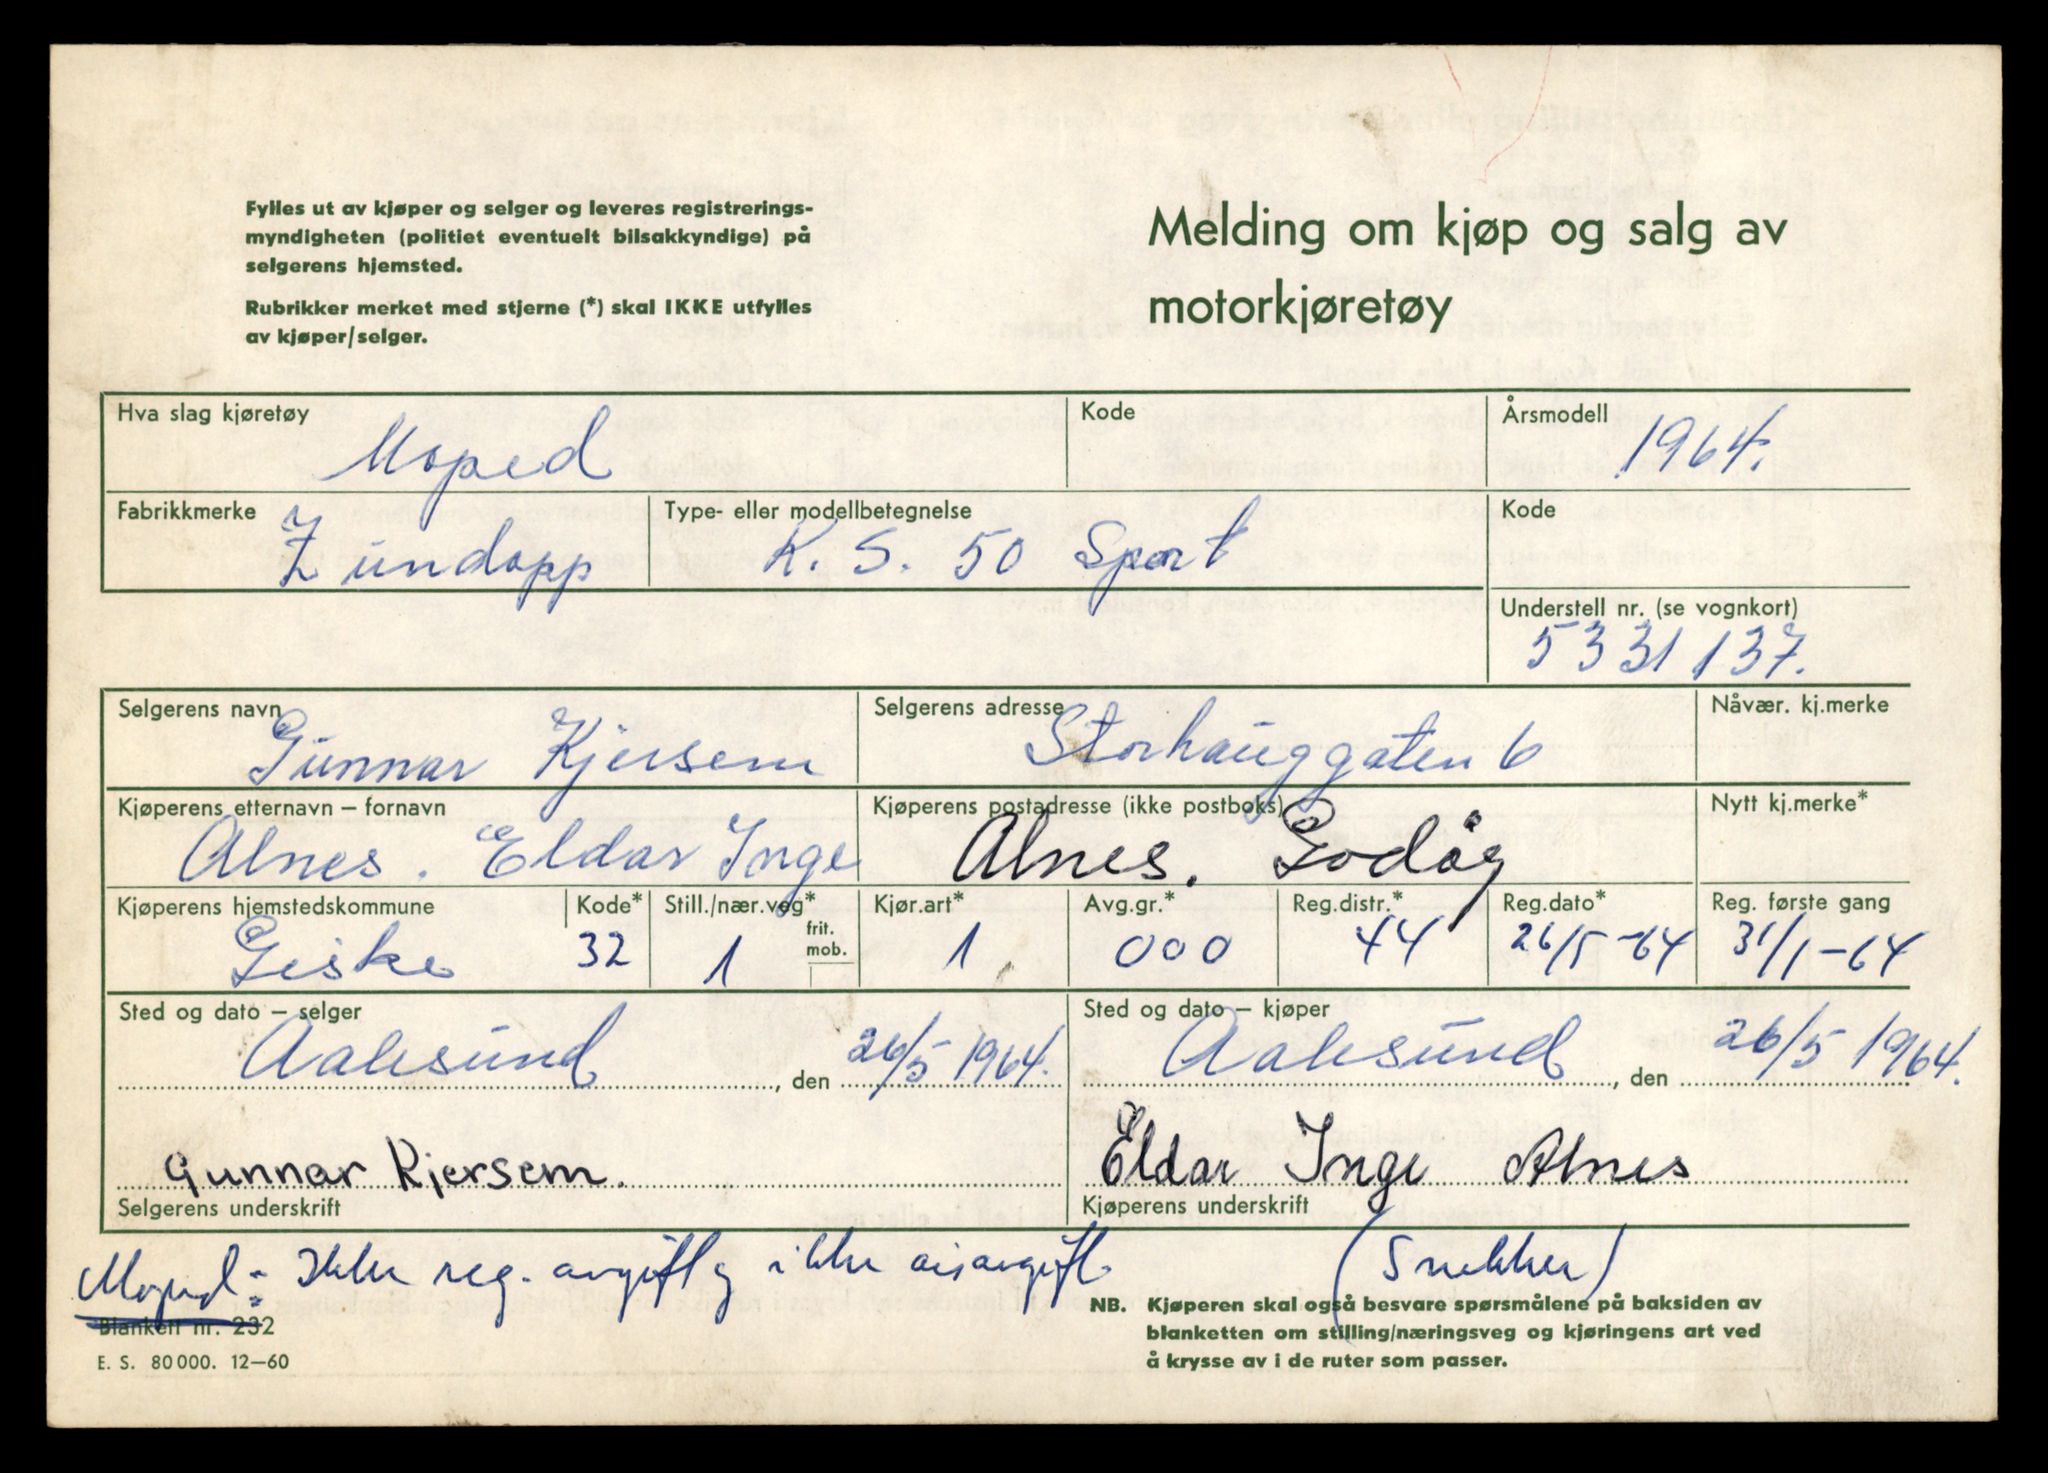 Fylles ut av kjøper og selger og leveres registrerings-
myndigheten (politiet eventuelt bilsakkyndige) på
selgerens hjemsted.
Rubrikker merket med stjerne (*) skal IKKE utfylles
av kjøper/selger.
Melding om kjøp og salg av
motorkjøretøy
Hva slag kjøretøy Kode Årsmodell
Moped 1964.
Fabrikkmerke Type- eller modellbetegnelse Kode
Zundapp K. S. 50 Sport
Understell nr. (se vognkort)
5331137.
Selgerens navn Selgerens adresse Nåvær. kj.merke
Gunnar Kjersem Storhauggaten 6
Kjøperens etternavn – fornavn Kjøperens postadresse (ikke postboks) Nytt kj.merke*
Alnes. Eldar Inge Alnes. Godøy
Kjøperens hjemstedskommune Kode* Still./nær.veg* Kjør.art* Avg.gr.* Reg.distr.* Reg.dato* Reg. første gang
frit.
mob.
Giske 32 1 1 000 44 26/5-64 31/1-64
Sted og dato – selger Sted og dato – kjøper
Aalesund, den 26/5 1964. Aalesund, den 26/5 1964.
Gunnar Kjersem. Eldar Inge Alnes
Selgerens underskrift Kjøperens underskrift
Moped: Ikke reg. avgift og ikke årsavgift. (Snekker)
Blankett nr. 232
E. S. 80000. 12–60
NB. Kjøperen skal også besvare spørsmålene på baksiden av
blanketten om stilling/næringsveg og kjøringens art ved
å krysse av i de ruter som passer.